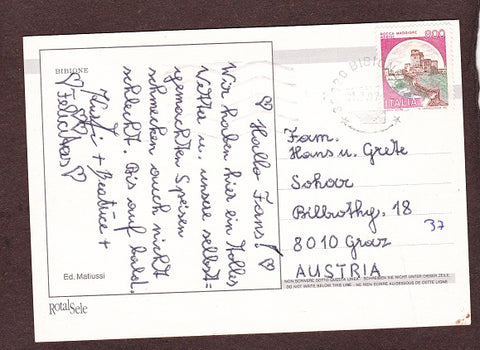 BIBIONE
♡ Hallo Fans! ♡
Wir haben hier ein tolles
Wetter u. unsre selbst=
gemachten Speisen
schmecken auch nicht
schlecht. Bis auf bald.
Kristi + Beatrice +
♡ Felicitas ♡
Ed. Matiussi
RotalSele
BIBIONE
ROCCA MAGGIORE
ASSISI
800
ITALIA
Fam.
Hans u. Grete
Sohar
Billrothg. 18
37
8010 Graz
AUSTRIA
NON SCRIVERE SOTTO QUESTA LINEA - SCHREIBEN SIE NICHT UNTER DIESER ZEILE
DO NOT WRITE BELOW THIS LINE - NE RIEN ECRIRE AU-DESSOUS DE CETTE LIGNE